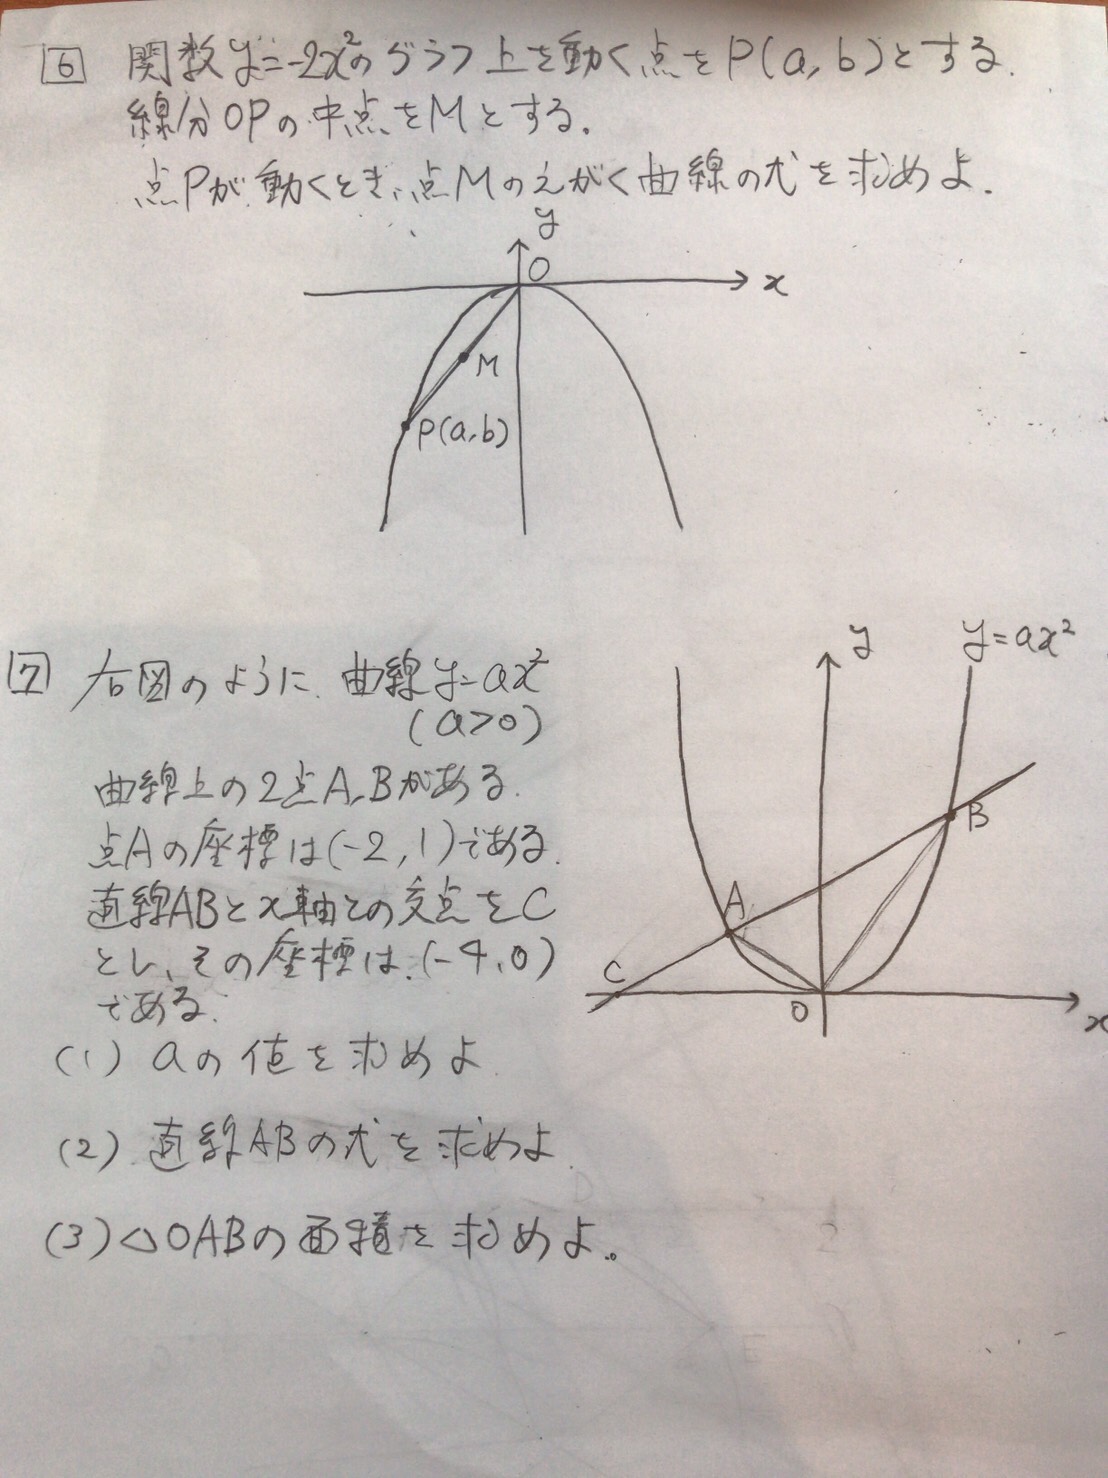 6 関数y=-2x²のグラフ上を動く点をP(a,b)とする.
線分OPの中点をMとする.
点Pが動くとき、点Mのえがく曲線の式を求めよ.
y
O
x
M
P(a,b)
7 右図のように、曲線y=ax²
(a>0)
曲線上の2点A,Bがある.
点Aの座標は(-2,1)である.
直線ABとx軸との交点をC
とし、その座標は、(-4,0)
である.
(1) aの値を求めよ
(2) 直線ABの式を求めよ.
(3) △OABの面積を求めよ。
y
y=ax²
B
A
C
O
x